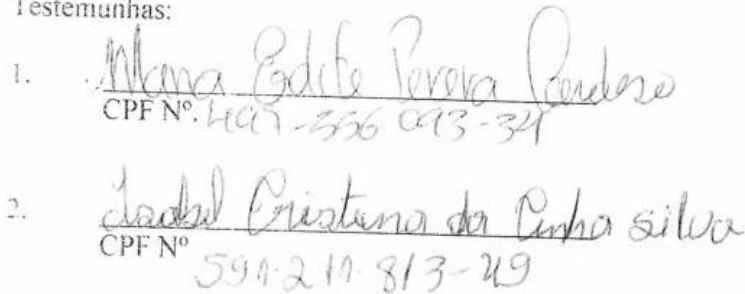 Testemunhas:
1. Maria Edite Pereira Cardoso
CPF Nº. 497-556 093-34
2. Isabel Cristina da Cunha silva
CPF Nº 591.211.813-49